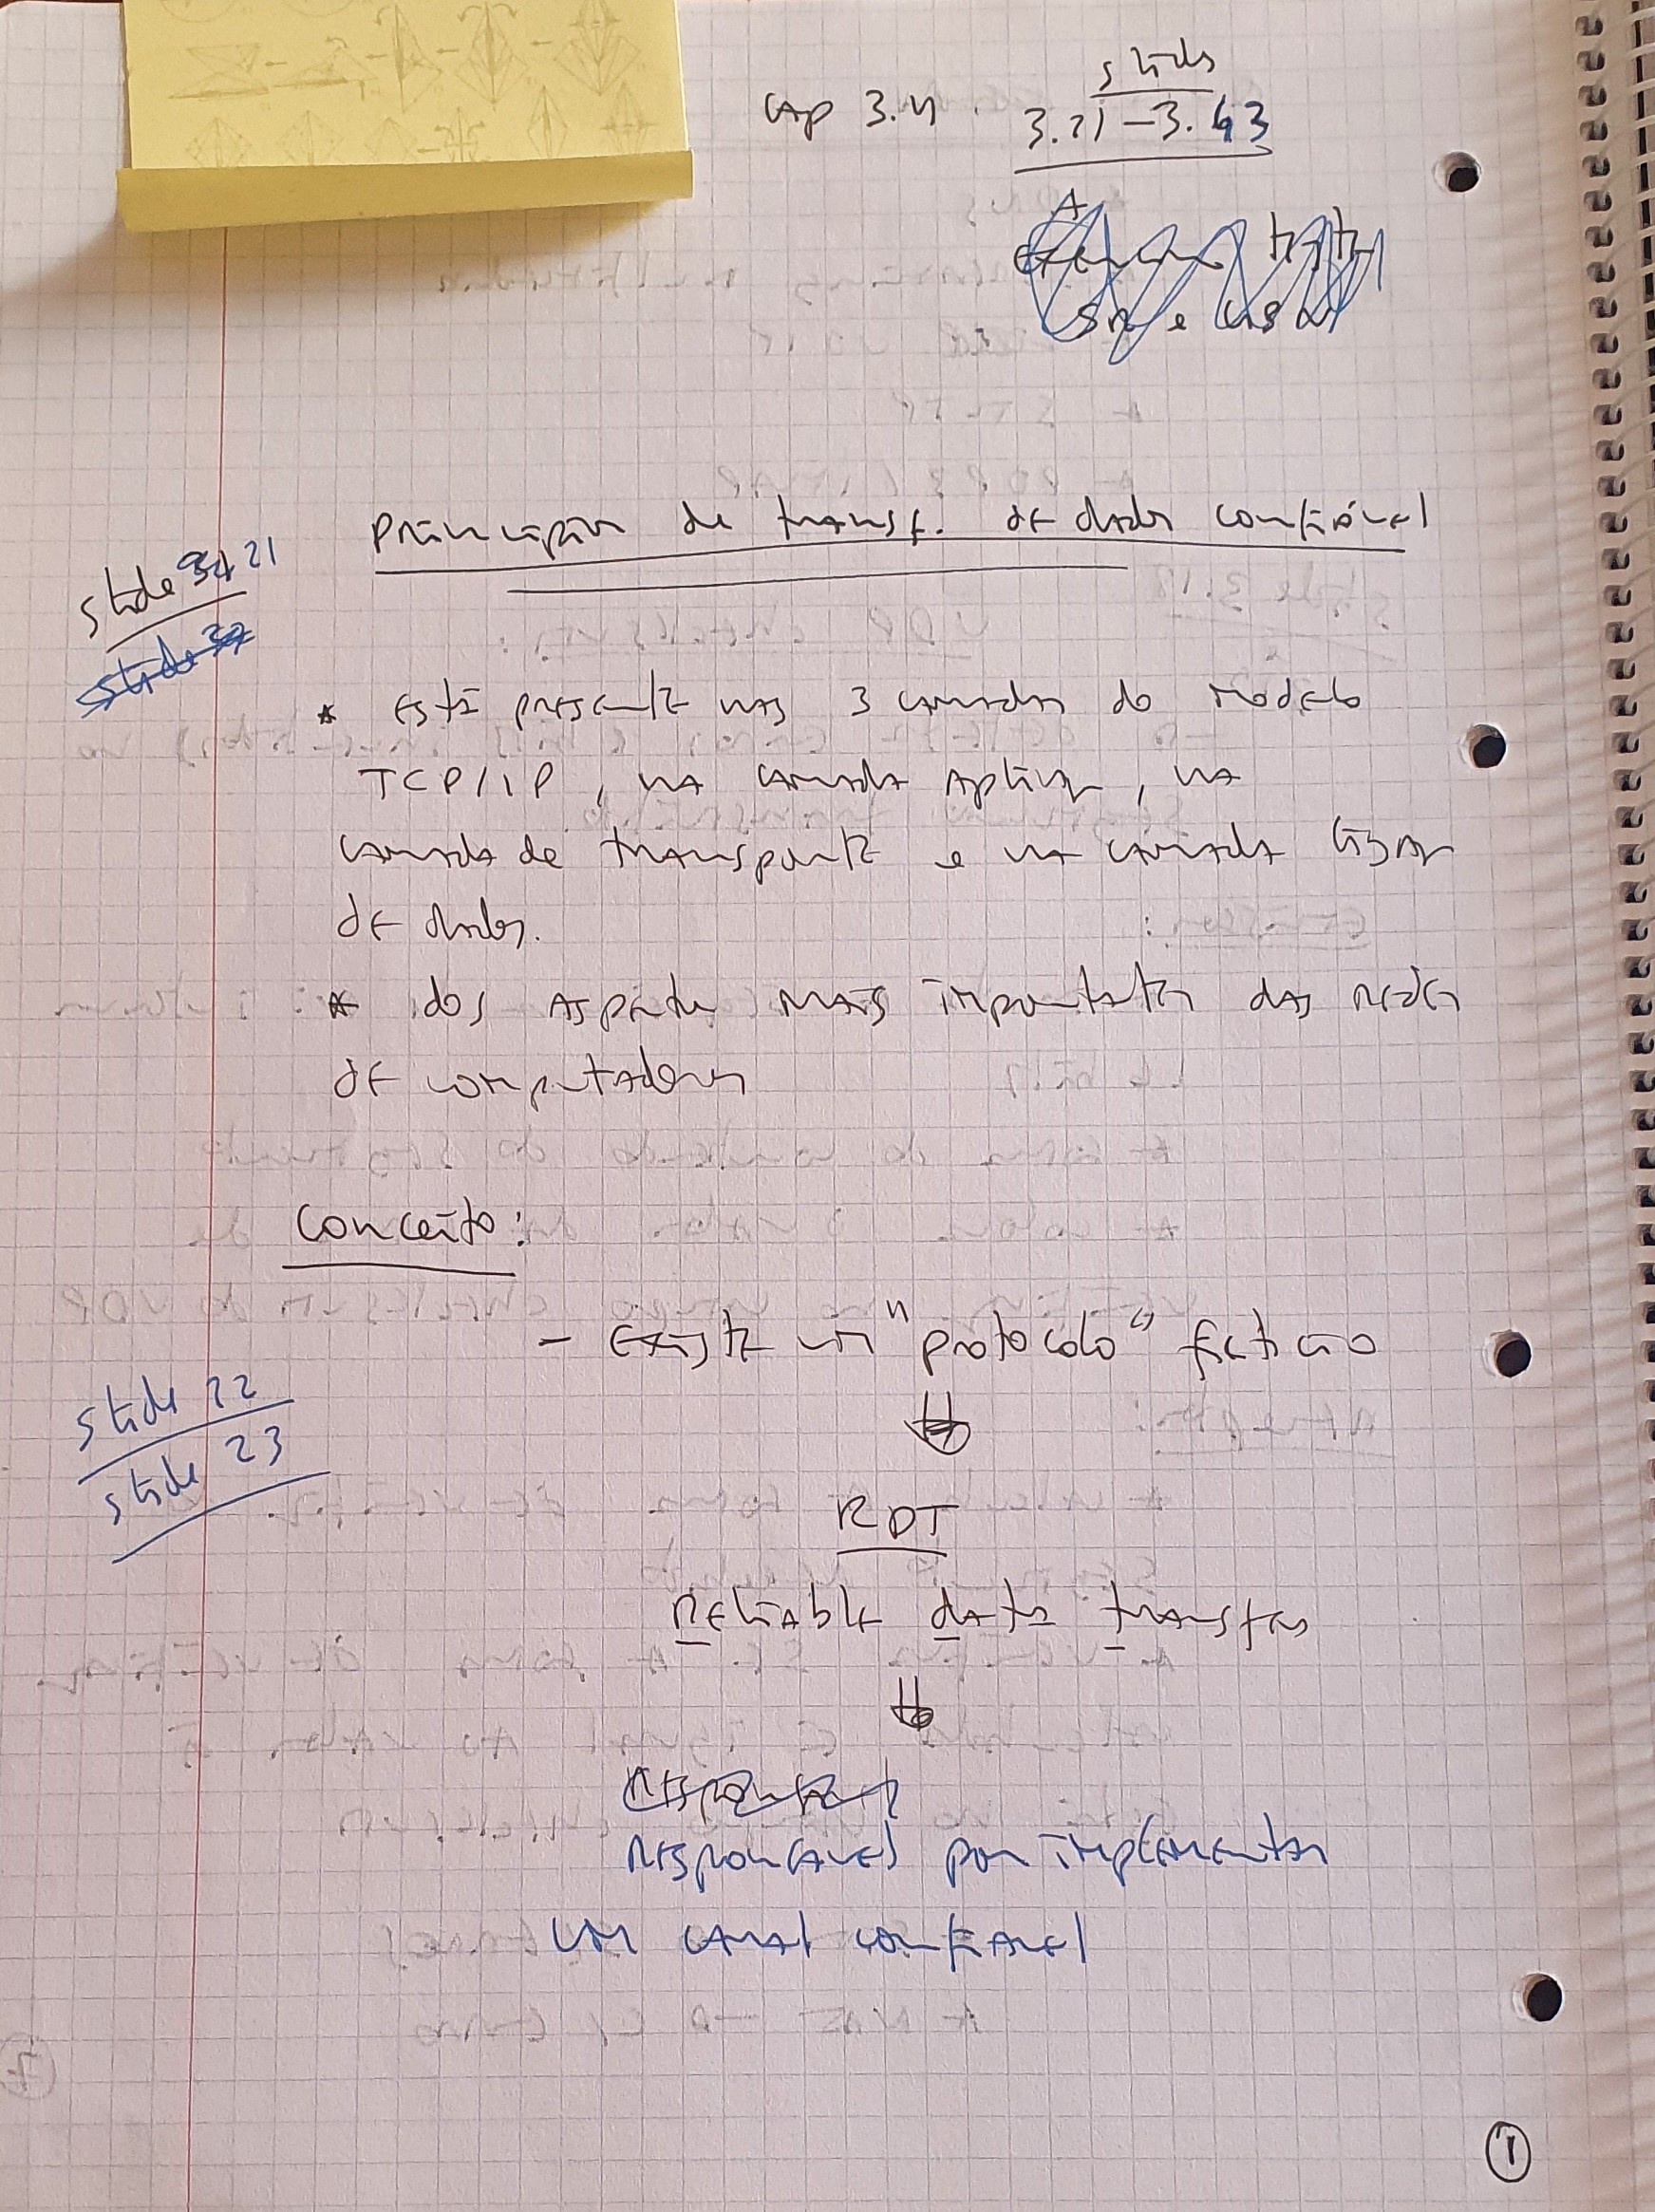 slides
cap 3.4. 3.21-3.43
Princípios de transf. de dados confiável
slide 21
* está presente nas 3 camadas do modelo
TCP/IP, na camada Aplicação, na
camada de transporte e na camada ligação
de dados.
* dos aspectos mais importantes das redes
de computadores
Conceito:
- Existe um "protocolo" ficticio
slide 22
slide 23
RDT
Reliable data transfer
Responsavel por implementar
um canal confiavel
1